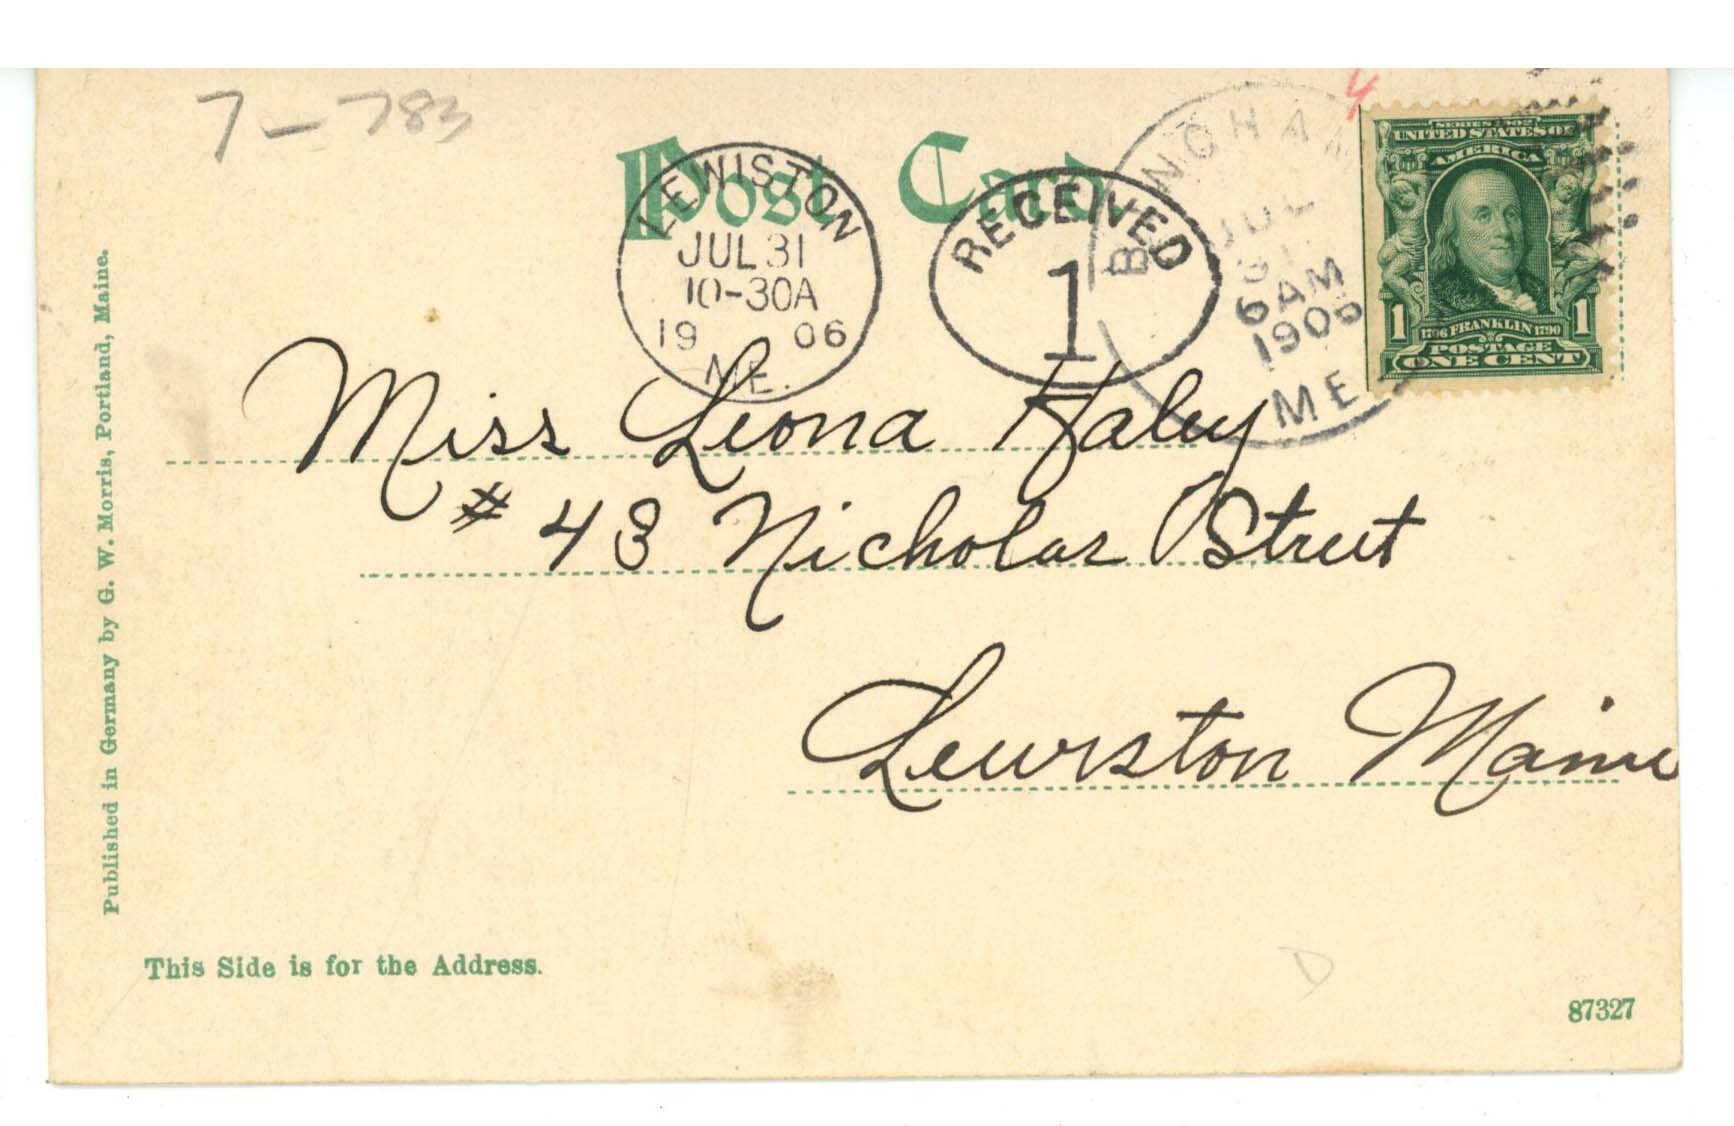 7-783
4
Post Card
LEWISTON
JUL 31
10-30A
19 06
ME.
RECEIVED
1
BINGHAM
JUL
31
6AM
1906
ME
SERIES 1902
UNITED STATES OF
AMERICA
1 1706 FRANKLIN 1790 1
POSTAGE
ONE CENT
Miss Leona Haley
# 43 Nicholas Street
Lewiston Maine
Published in Germany by G. W. Morris, Portland, Maine.
This Side is for the Address.
D
87327